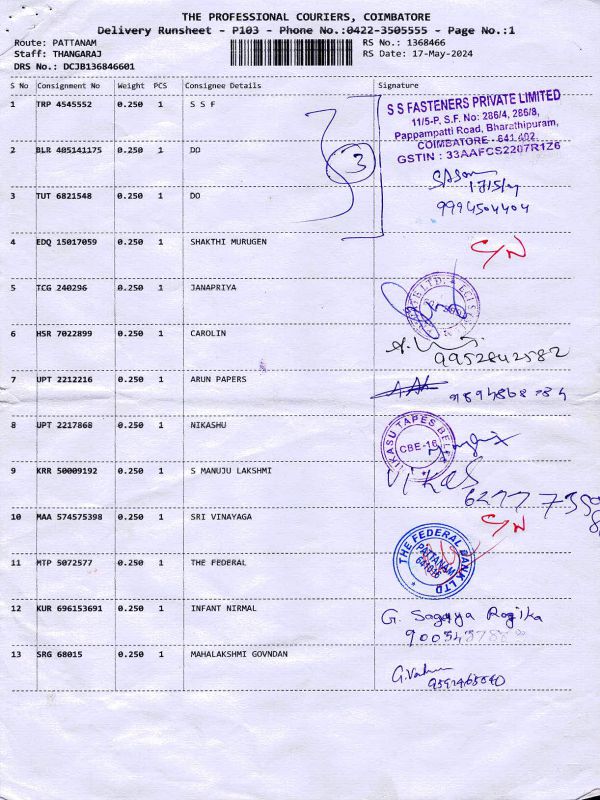 THE PROFESSIONAL COURIERS, COIMBATORE
Delivery Runsheet - P103 - Phone No.:0422-3505555 - Page No.:1
Route: PATTANAM
RS No.: 1368466
Staff: THANGARAJ
RS Date: 17-May-2024
DRS No.: DCJB136846601
S No Consignment No Weight PCS Consignee Details Signature
1 TRP 4545552 0.250 1 S S F
S S FASTENERS PRIVATE LIMITED
11/5-P, S.F. No: 286/4, 286/8,
Pappampatti Road, Bharathipuram,
COIMBATORE - 641 402.
GSTIN : 33AAFCS2207R1Z6
2 BLR 405141175 0.250 1 DO
3
3 TUT 6821548 0.250 1 DO
9994504404
4 EDQ 15017059 0.250 1 SHAKTHI MURUGEN
C/N
5 TCG 240296 0.250 1 JANAPRIYA
6 HSR 7022899 0.250 1 CAROLIN
9952842582
7 UPT 2212216 0.250 1 ARUN PAPERS
8 UPT 2217868 0.250 1 NIKASHU
CBE-16
9 KRR 50009192 0.250 1 S MANUJU LAKSHMI
Vikas
10 MAA 574575398 0.250 1 SRI VINAYAGA
C/N
11 MTP 5072577 0.250 1 THE FEDERAL
THE FEDERAL BANK LTD
PATTANAM
641016
12 KUR 696153691 0.250 1 INFANT NIRMAL
G. Sagaya Rogika
13 SRG 68015 0.250 1 MAHALAKSHMI GOVNDAN